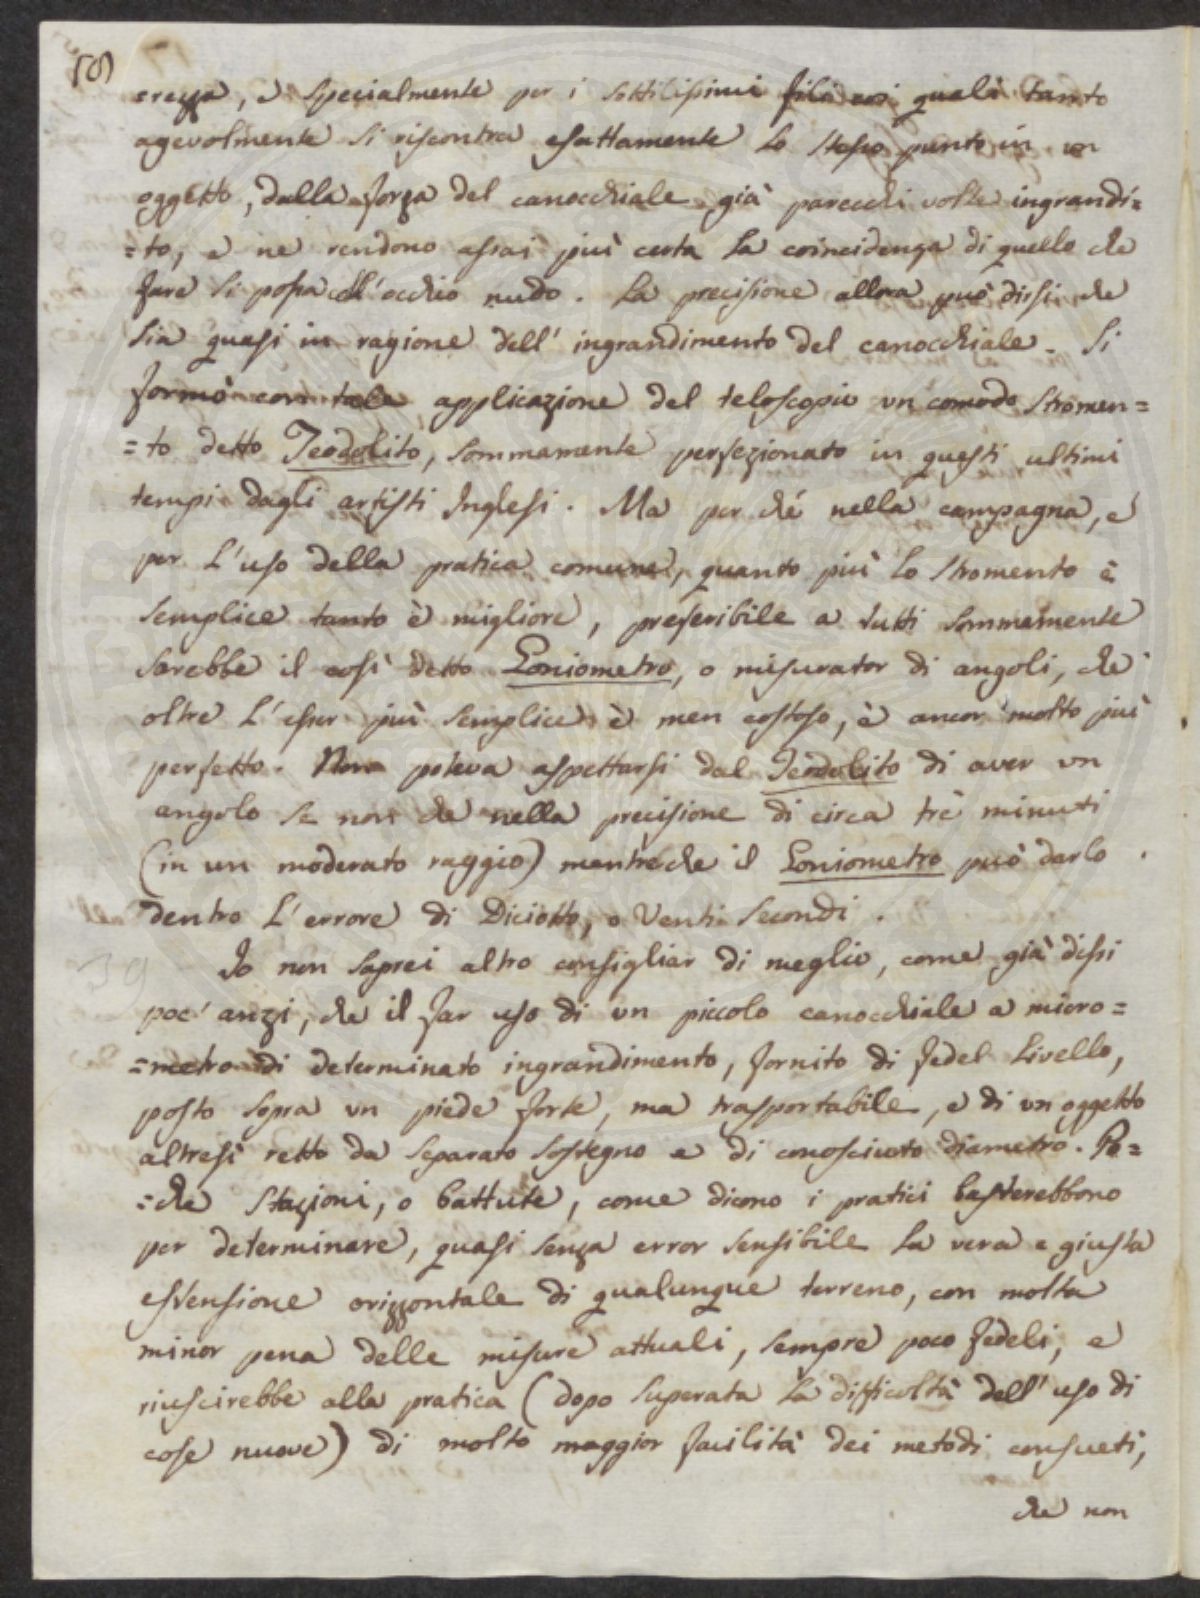 (8)
erezza, e specialmente per i sottilissimi fili coi quali tanto
agevolmente si riscontra esattamente lo stesso punto in un
oggetto, dalla forza del canocchiale già parecchi volte ingrandi=
=to, e ne rendono assai più certa la coincidenza di quello che
fare si possa coll'occhio nudo. La precisione allora può dirsi che
sia quasi in ragione dell' ingrandimento del canocchiale. Si
formò con tale applicazione del teloscopio un comodo stromen=
=to detto Teodolito, sommamente perfezionato in questi ultimi
tempi dagli artisti Inglesi. Ma per ché nella campagna, e
per l'uso della pratica comune, quanto più lo stromento è
semplice tanto è migliore, preferibile a tutti sommamente
sarebbe il così detto Goniometro, o misurator di angoli, che
oltre l'esser più semplice è men costoso, è ancor molto più
perfetto. Non poteva aspettarsi dal Teodolito di aver un
angolo se non che nella precisione di circa trè minuti
(in un moderato raggio) mentre che il Goniometro può darlo
dentro l'errore di Diciotto, o Venti Secondi.
Io non saprei altro consigliar di meglio, come già dissi
poc' anzi, che il far uso di un piccolo canocchiale a micro=
=metro di determinato ingrandimento, fornito di fedel Livello,
posto sopra un piede forte, ma trasportabile, e di un oggetto
altresì retto da separato sostegno e di conosciuto diametro. Po=
=che stazioni, o battute, come dicono i pratici basterebbono
per determinare, quasi senza error sensibile la vera e giusta
estensione orizzontale di qualunque terreno, con molta
minor pena delle misure attuali, sempre poco fedeli, e
riuscirebbe alla pratica (dopo superata la difficoltà dell' uso di
cose nuove) di molto maggior facilità dei metodi consueti,
che non
39